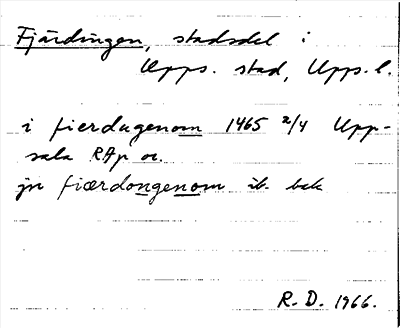 Fjärdingen, stadsdel i
Upps. stad, Upps. l.
i fierdagenom 1465 2/4 Upp-
sala RAp or.
jn fiærdongenom ib. bak
R. D. 1966.